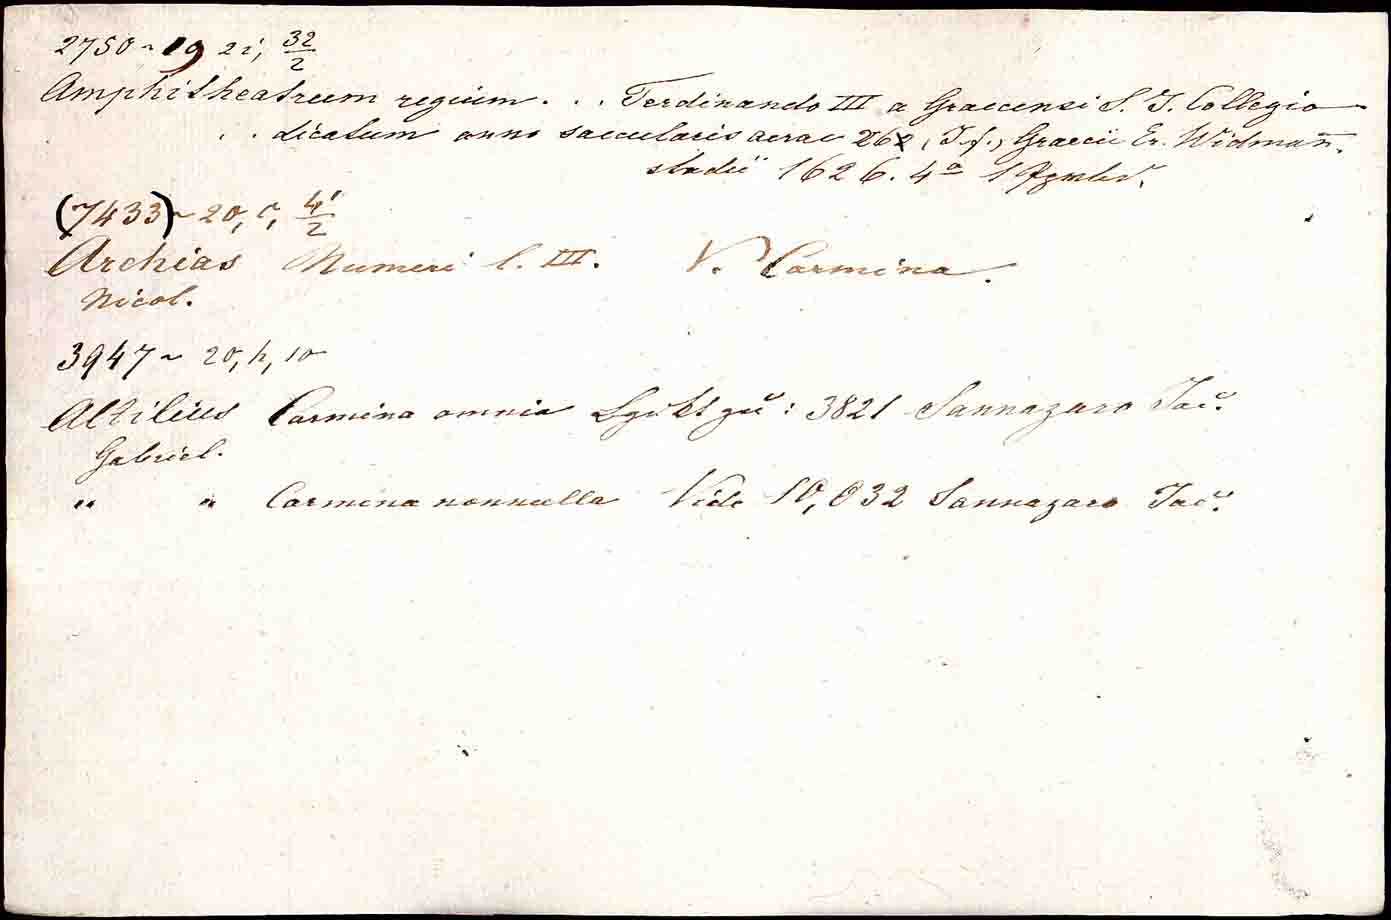 2750 ~ 19 2i, 32/2
Amphitheatrum regium . . . Ferdinando III a Graecensi S. J. Collegio
. . dicatum anno saecularis aerae 26, I. f., Graecii Er. Widman̄.
stadii 1626. 4º 1
(7433) ~ 20, c, 4'/2
Archias Numeri l. III. V. Carmina.
Nicol.
3947 ~ 20, h, 10
Altilius Carmina omnia : 3821 Sannazaro Jac.
Gabriel.
" " Carmina nonnulla Vide 10,032 Sannazaro Jac.